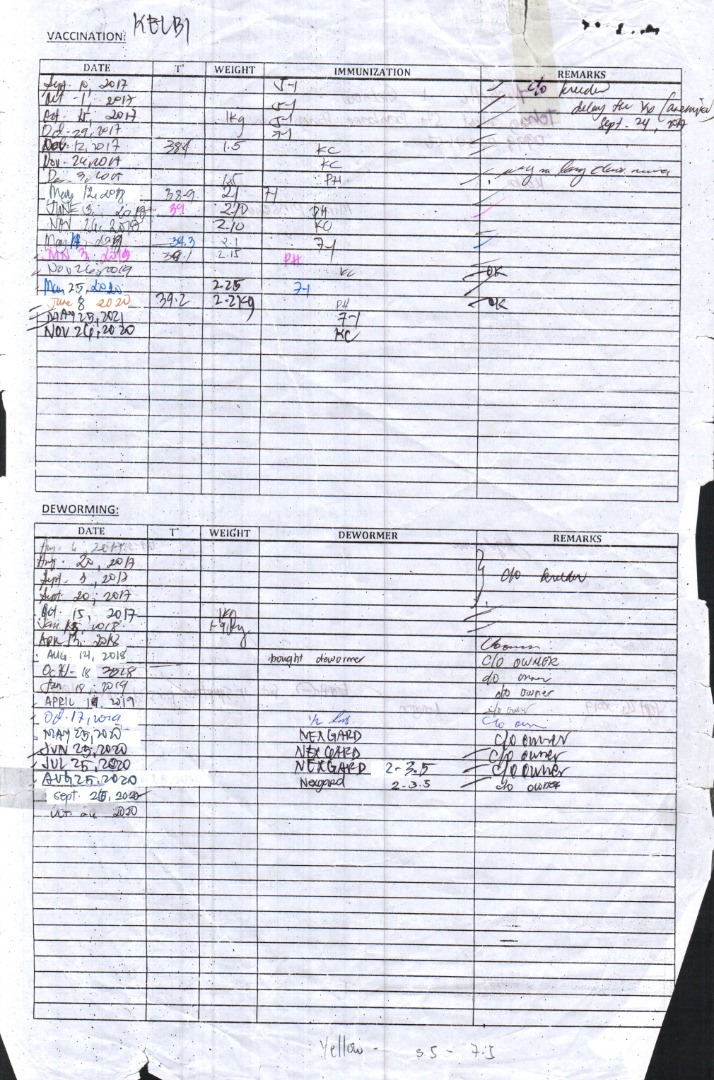 VACCINATION: KELBI
DATE T° WEIGHT IMMUNIZATION REMARKS
Sept. 10, 2017 5-1 c/o breeder
Oct. 1, 2017 5-1 delay the
Oct. 15, 2017 1kg 5-1 Sept. 24, 2017
Oct. 29, 2017 7-1
Nov. 12, 2017 38.1 1.5 KC
Nov. 26, 2017 KC
Dec. 3, 2017 1.5 PH
May 12, 2018 38.9 21 H
JUNE 3, 2018 39 2.10 PH
NOV 26, 2018 2.10 KC
May 2019 38.3 2.1 7-1
JUN 3, 2019 38.1 2.15 PH
NOV 26, 2019 KC OK
May 25, 2020 2.25 7-1
June 8 2020 39.2 2.2kg PH OK
MAY 25, 2021 7-1
NOV 26, 2020 KC
DEWORMING:
DATE T° WEIGHT DEWORMER REMARKS
2017
Aug. 20, 2017
Sept. 3, 2017 c/o breeder
Sept 20, 2017
Oct. 15, 2017 1kg
Jan 2018
Apr 13, 2018
AUG. 14, 2018 bought dewormer C/O OWNER
Oct 18 2018 c/o owner
Jan 18, 2019 c/o owner
APRIL 2019 c/o owner
Oct. 17, 2019 1/2 c/o
MAY 25, 2020 NEXGARD c/o owner
JUN 25, 2020 NEXGARD c/o owner
JUL 25, 2020 NEXGARD 2-3.5 c/o owner
AUG 25, 2020 Nexgard 2-3.5 c/o owner
Sept. 25, 2020
2020
Yellow - 3.5 - 7.5